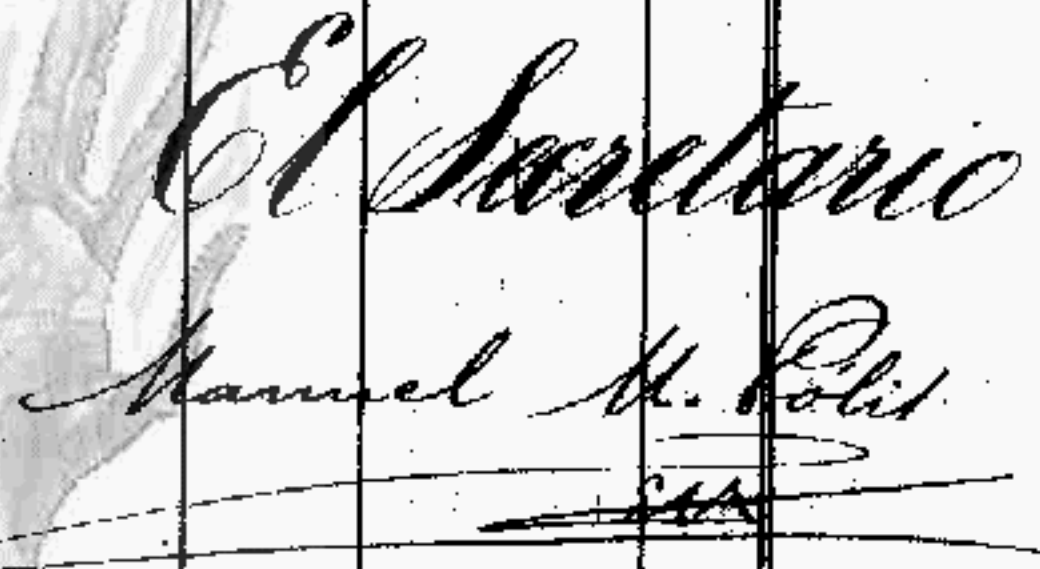 El Secretario
Manuel M. Polit